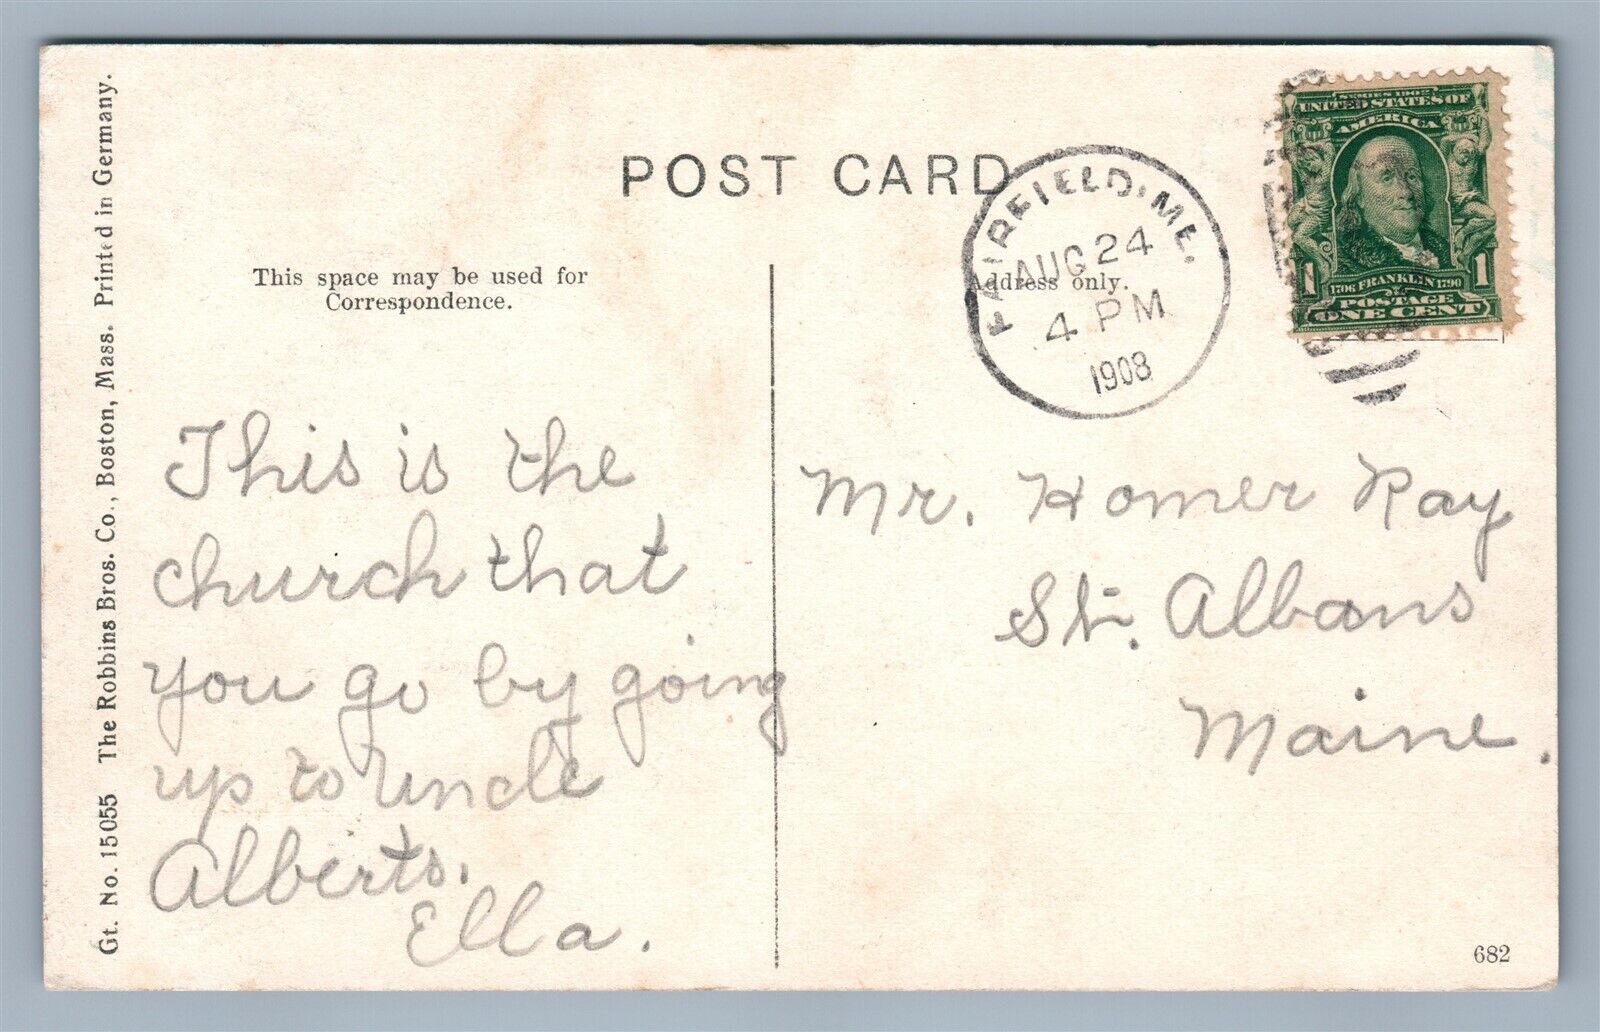 Gt. No. 15055 The Robbins Bros. Co., Boston, Mass. Printed in Germany.
POST CARD
This space may be used for
Correspondence.
Address only.
FAIRFIELD, ME.
AUG 24
4 PM
1908
SERIES 1902
UNITED STATES OF
AMERICA
1706 FRANKLIN 1790
1 1
POSTAGE
ONE CENT
This is the
church that
you go by going
up to uncle
Alberts.
Ella.
Mr. Homer Ray
St. Albans
Maine.
682